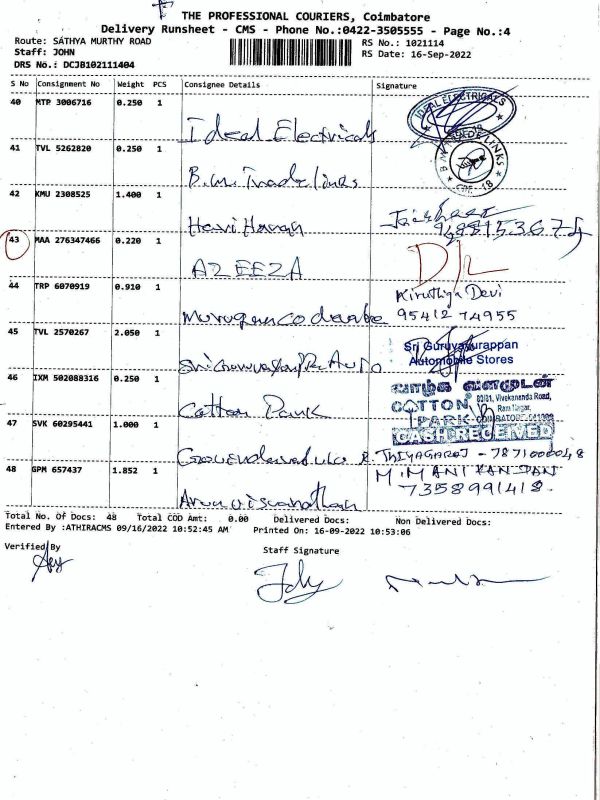 THE PROFESSIONAL COURIERS, Coimbatore
Delivery Runsheet - CMS - Phone No.:0422-3505555 - Page No.:4
Route: SATHYA MURTHY ROAD
RS No.: 1021114
Staff: JOHN
RS Date: 16-Sep-2022
DRS No.: DCJB102111404
S No Consignment No Weight PCS Consignee Details Signature
40 MTP 3006716 0.250 1
Ideal Electricals
IDEAL ELECTRICALS
41 TVL 5262820 0.250 1
B.M. Trade links
B.M. TRADE LINKS
CBE - 18
42 KMU 2308525 1.400 1
43 MAA 276347466 0.220 1
AZEEZA
D/L
44 TRP 6070919 0.910 1
Kiruthiga Devi
95412 74955
45 TVL 2570267 2.050 1
Sri Guruvayurappan
Automobile Stores
46 IXM 502088316 0.250 1
Cotton Park
COTTON
PARK
80/81, Vivekananda Road,
Ram Nagar,
CASH RECEIVED
47 SVK 60295441 1.000 1
R. THIYAGARAJ - 7871000048
48 GPM 657437 1.852 1
Arun viswanathan
M. MANIKANDAN
7358991418
Total No. Of Docs: 48 Total COD Amt: 0.00 Delivered Docs: Non Delivered Docs:
Entered By :ATHIRACMS 09/16/2022 10:52:45 AM Printed On: 16-09-2022 10:53:06
Verified By
Staff Signature